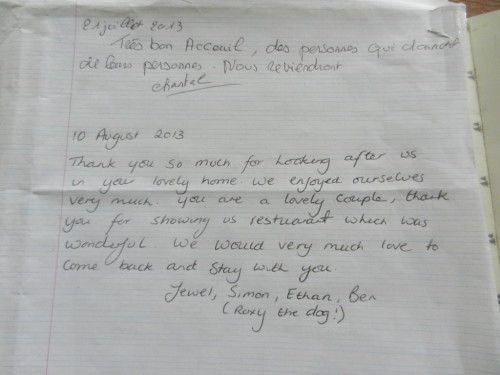 21 juillet 2013
Très bon Acceuil, des personnes qui donnent
de leurs personnes. Nous reviendront
chantal
10 August 2013
Thank you so much for looking after us
in your lovely home. We enjoyed ourselves
very much. you are a lovely couple, thank
you for showing us restuarant which was
wonderful. We would very much love to
come back and stay with you.
Jewel, Simon, Ethan, Ben
(Roxy the dog!)